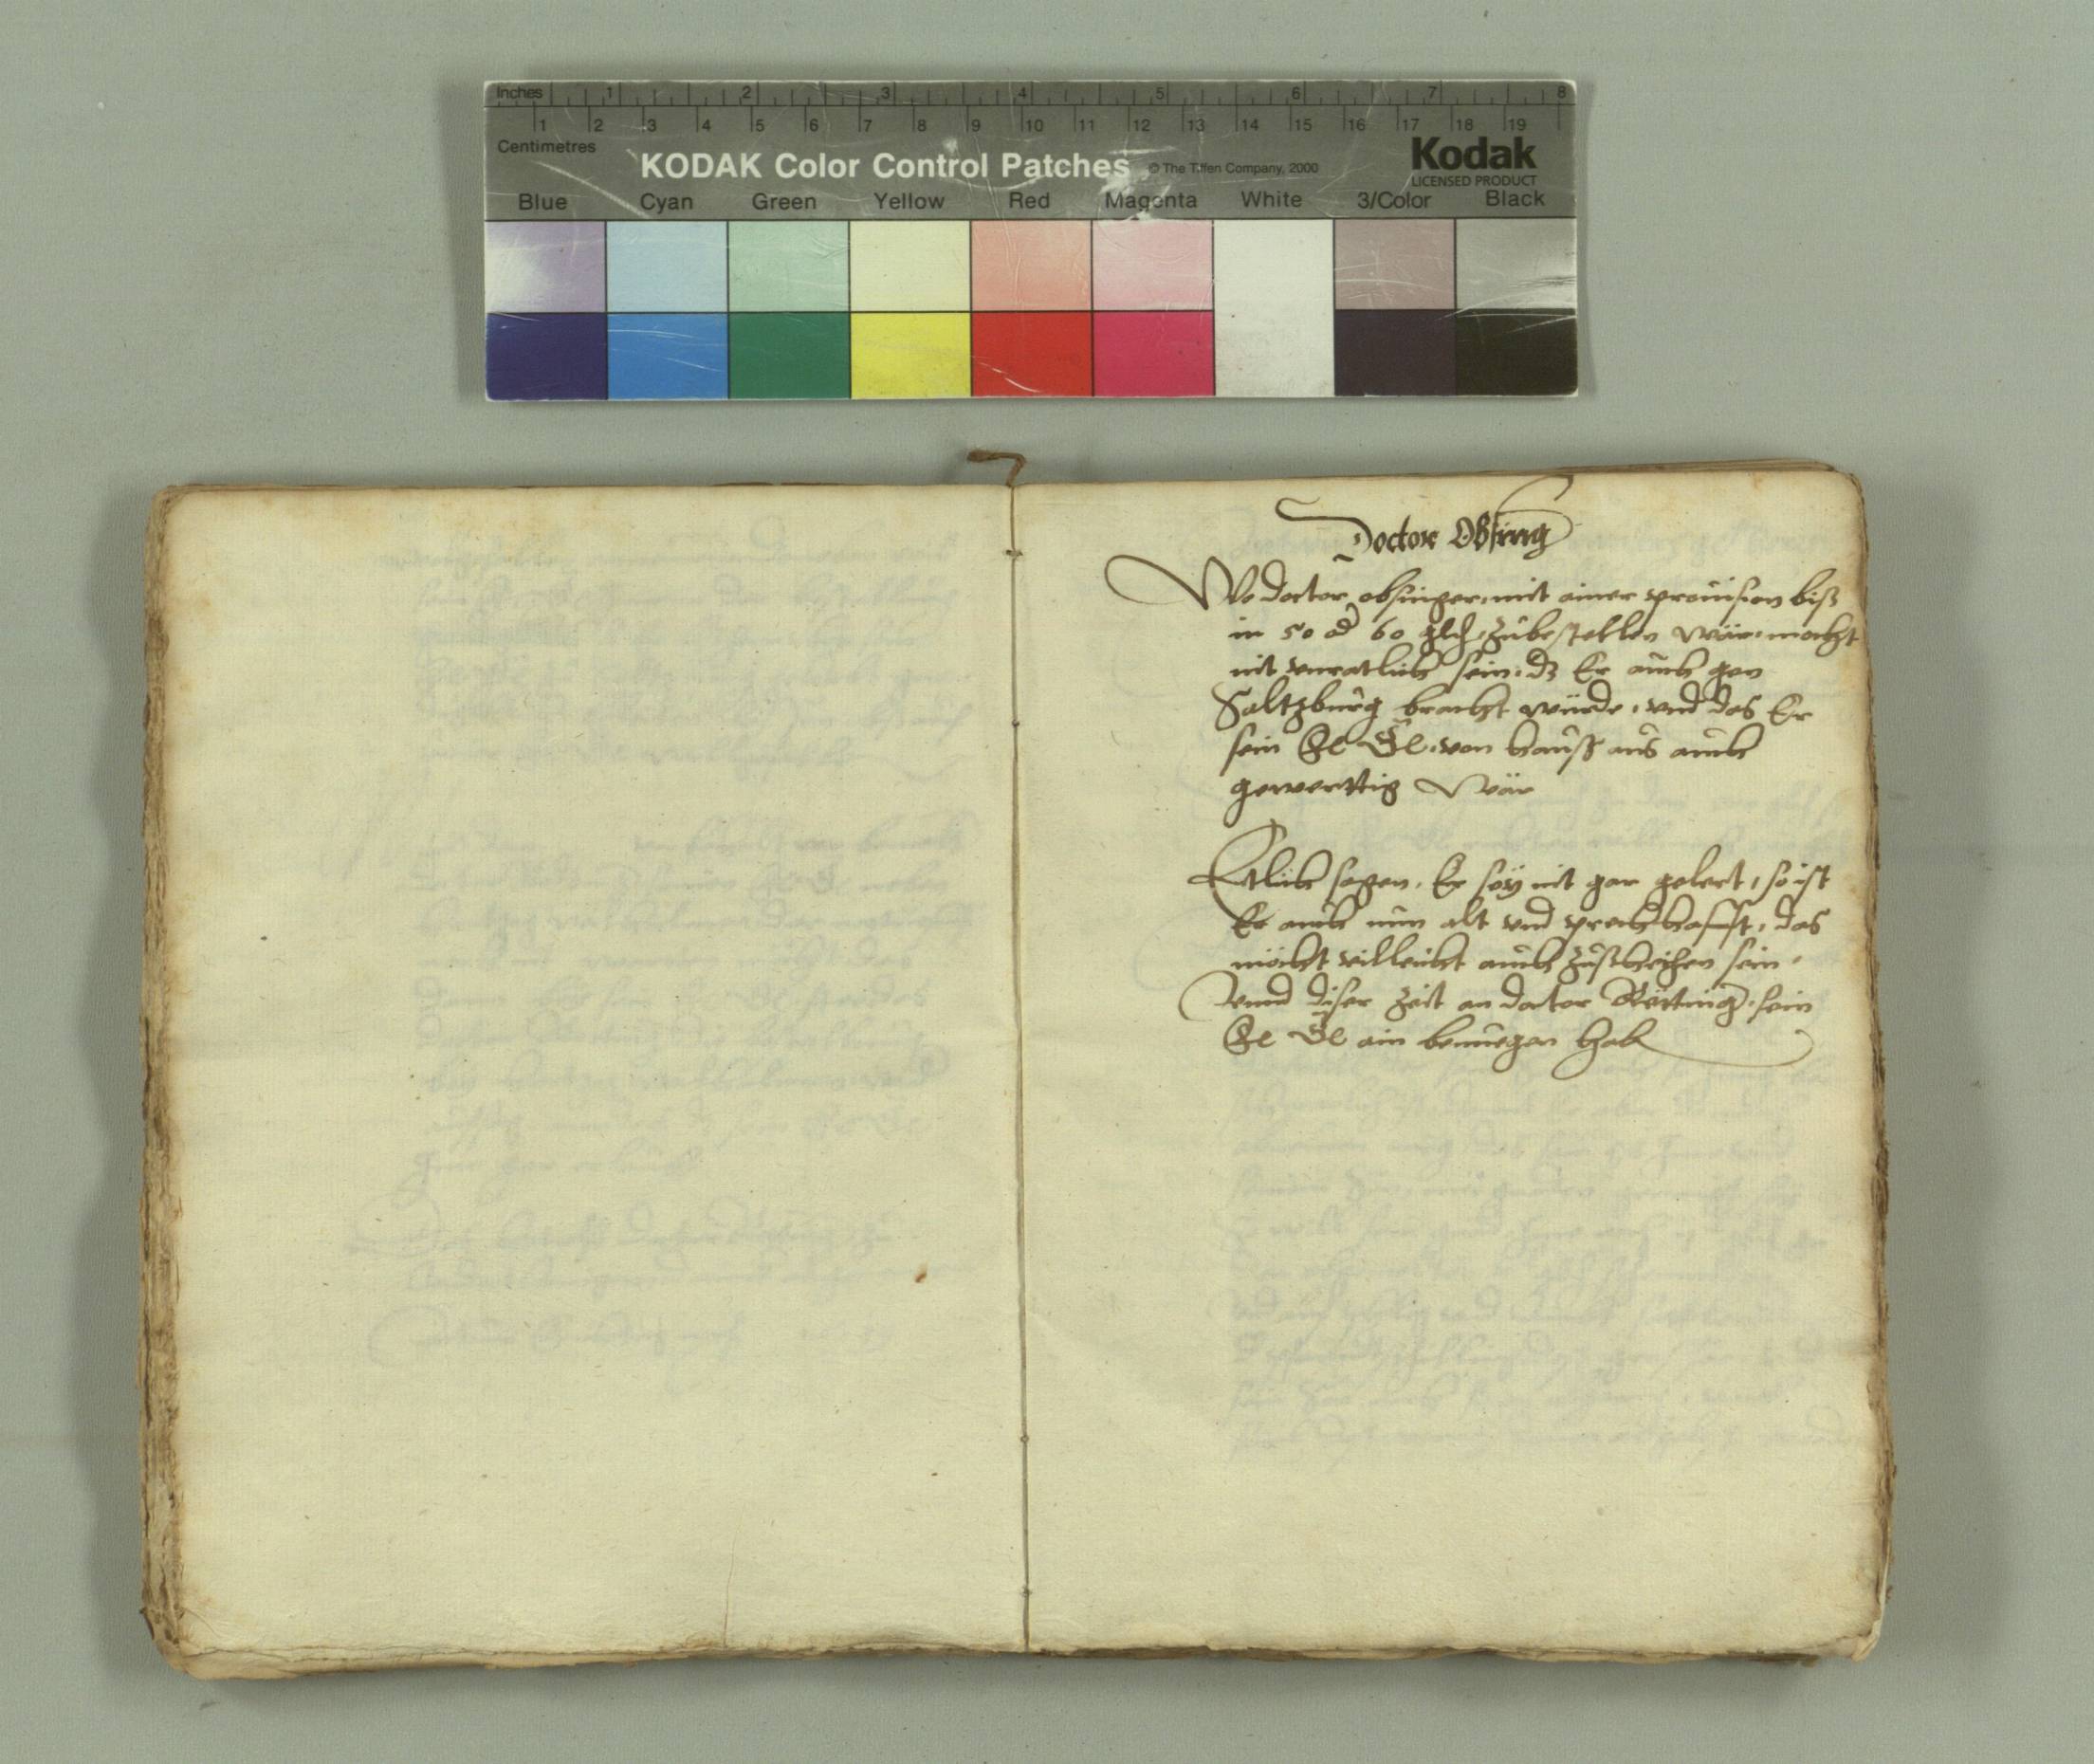 Inches 1 2 3 4 5 6 7 8
1 2 3 4 5 6 7 8 9 10 11 12 13 14 15 16 17 18 19
Centimetres
KODAK Color Control Patches © The Tiffen Company, 2000 Kodak
LICENSED PRODUCT
Blue Cyan Green Yellow Red Magenta White 3/Color Black
Doctor Obsing
Wo doctor obsinger, mit ainer prouision biß
in 50 od 60 zubestellen wär, mocht
nit vnratlich sein, dz Er auch gen
Saltzburg bracht würde, vnd das Er
sein von hauss aus auch
gewerttig Wär
Etlich sagen, Er sey nit gar gelert, so ist
Er auch nun alt vnd prechhafft, das
möcht villeicht auch zu sein,
Vnnd diser Zeit an doctor sein
ain benuegen hab